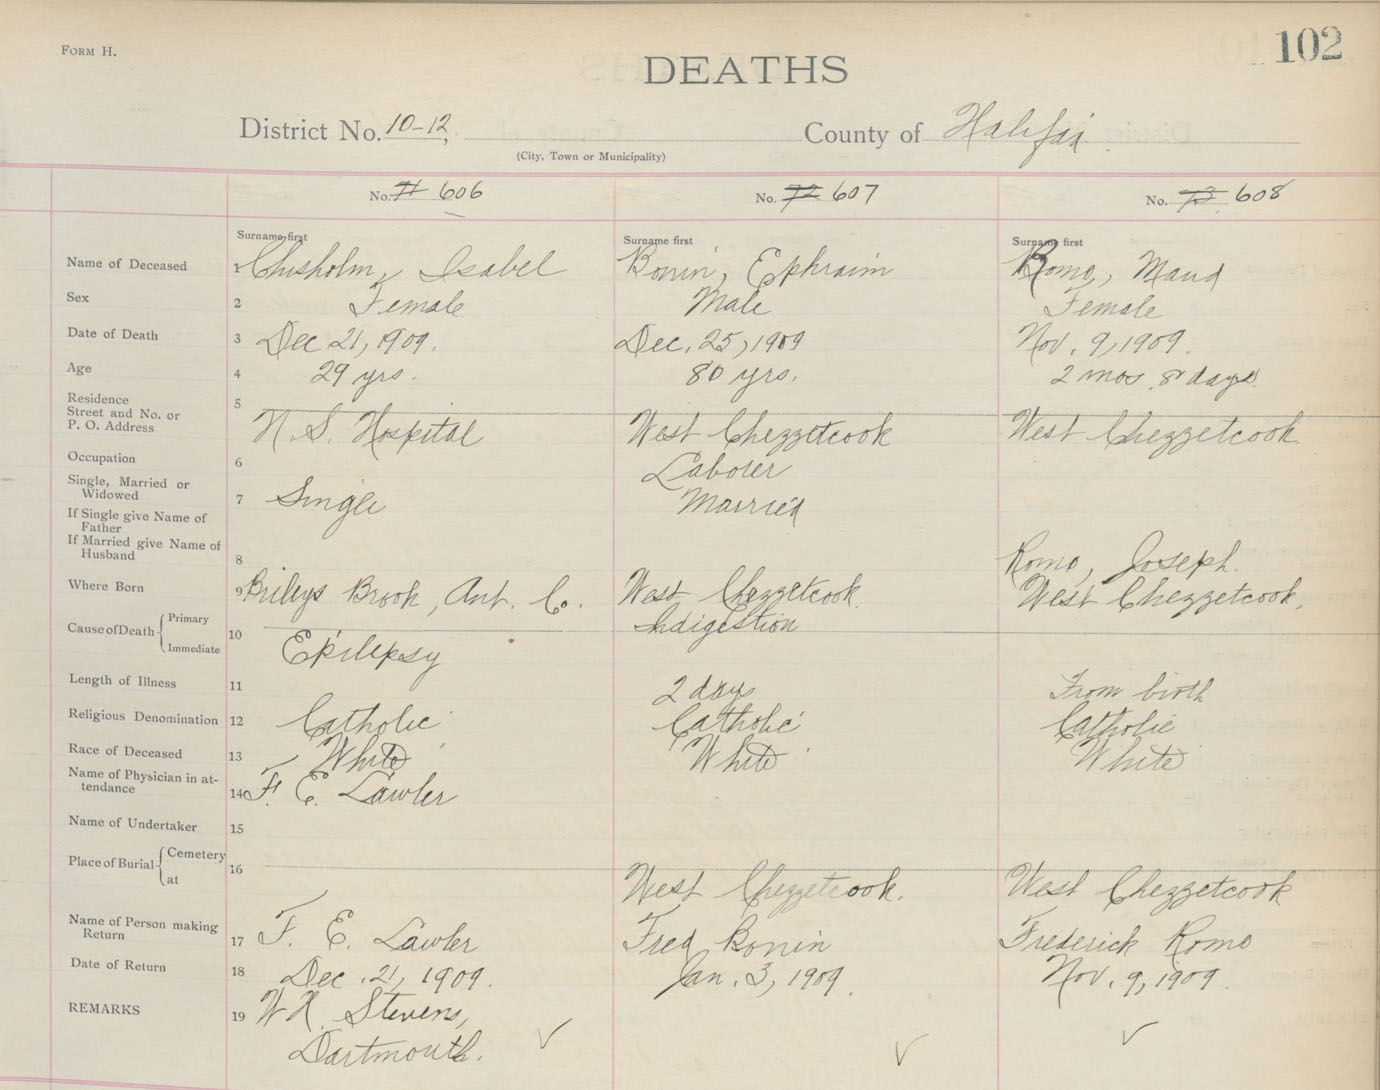 FORM H.
102
DEATHS
District No. 10-12, County of Halifax
(City, Town or Municipality)
No. 71 606 No. 72 607 No. 73 608
Surname first Surname first Surname first
Name of Deceased 1 Chisholm, Isabel Bonin, Ephraim Romo, Maud
Sex 2 Female Male Female
Date of Death 3 Dec 21, 1909. Dec. 25, 1909 Nov. 9, 1909.
Age 4 29 yrs. 80 yrs. 2 mos. 8 days.
Residence 5
Street and No. or
P. O. Address N. S. Hospital West Chezzetcook West Chezzetcook
Occupation 6 Laborer
Single, Married or
Widowed 7 Single Married
If Single give Name of
Father
If Married give Name of
Husband 8 Romo, Joseph.
Where Born 9 Brileys Brook, Ant. Co. West Chezzetcook. West Chezzetcook,
Cause of Death Primary Indigestion
10
Immediate Epilepsy
Length of Illness 11 2 days From birth
Religious Denomination 12 Catholic Catholic Catholic
Race of Deceased 13 White White White
Name of Physician in at-
tendance 14 F. E. Lawler
Name of Undertaker 15
Place of Burial Cemetery
16
at West Chezzetcook. West Chezzetcook
Name of Person making
Return 17 F. E. Lawler Fred Bonin Frederick Romo
Date of Return 18 Dec. 21, 1909. Jan. 3, 1909. Nov. 9, 1909.
REMARKS 19 W. H. Stevens,
Dartmouth.